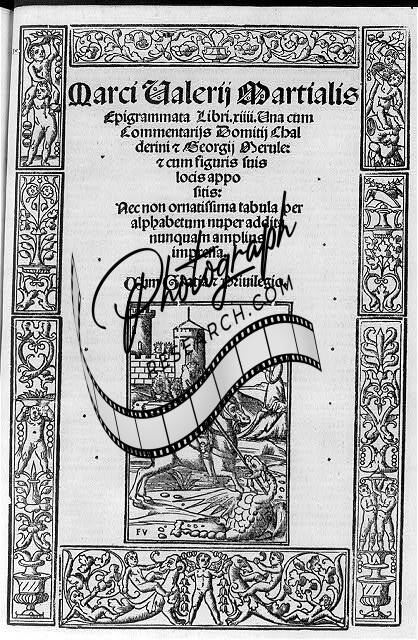 Marci Valerij Martialis
Epigrammata Libri.xiiii. Una cum
Commentarijs Domitij Chal
derini ⁊ Georgij Merule:
⁊ cum figuris suis
locis appo
sitis:
Nec non ornatissima tabula per
alphabetum nuper addita
nunquam amplius
impressa.
Cum Gratia ⁊ Privilegio.
Photograph
RESEARCH.COM
FV